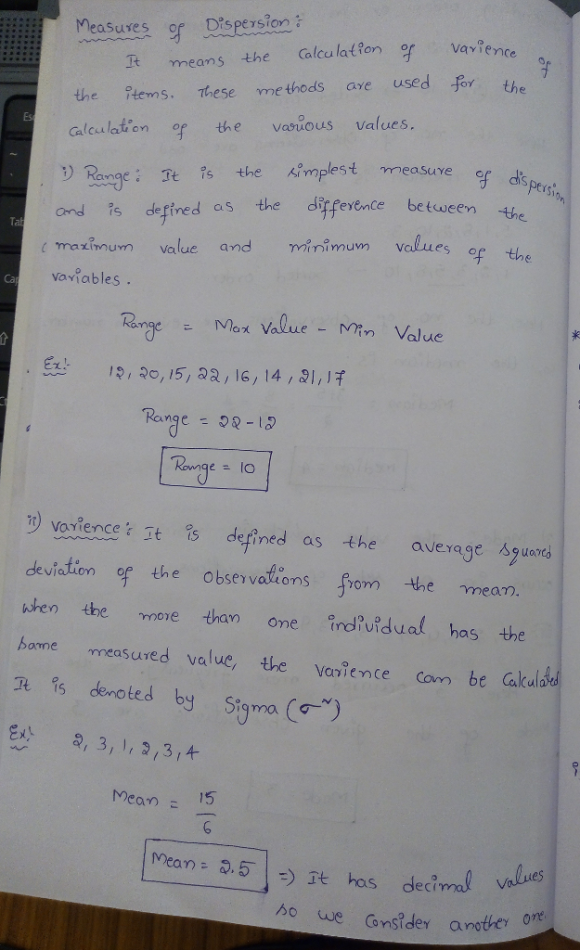 Measures of Dispersion:
It means the calculation of varience of
the items. These methods are used for the
calculation of the various values.
i) Range: It is the simplest measure of dispersion
and is defined as the difference between the
maximum value and minimum values of the
variables.
Range = Max Value - Min Value
Ex:
12, 20, 15, 22, 16, 14, 21, 17
Range = 22-12
Range = 10
ii) varience: It is defined as the average squared
deviation of the observations from the mean.
when the more than one individual has the
same measured value, the varience can be calculated
It is denoted by Sigma (σ~)
Ex:
2, 3, 1, 2, 3, 4
Mean = 15/6
Mean = 2.5 => It has decimal values
so we consider another one